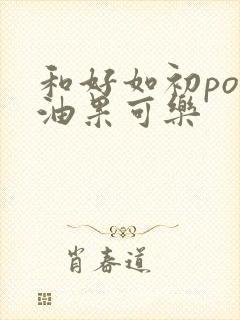 和好如初po
油果可樂
肖春道